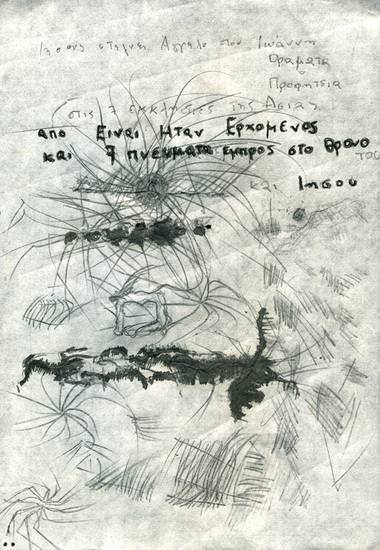 Ιησους στελνει Αγγελο στον Ιωάννη
Οραματα
Προφητεια
στις 7 εκκλησιες της Ασιας
απο Ειναι Ηταν Ερχομενος
και 7 πνευματα εμπρος στο θρονο
του
και Ιησου